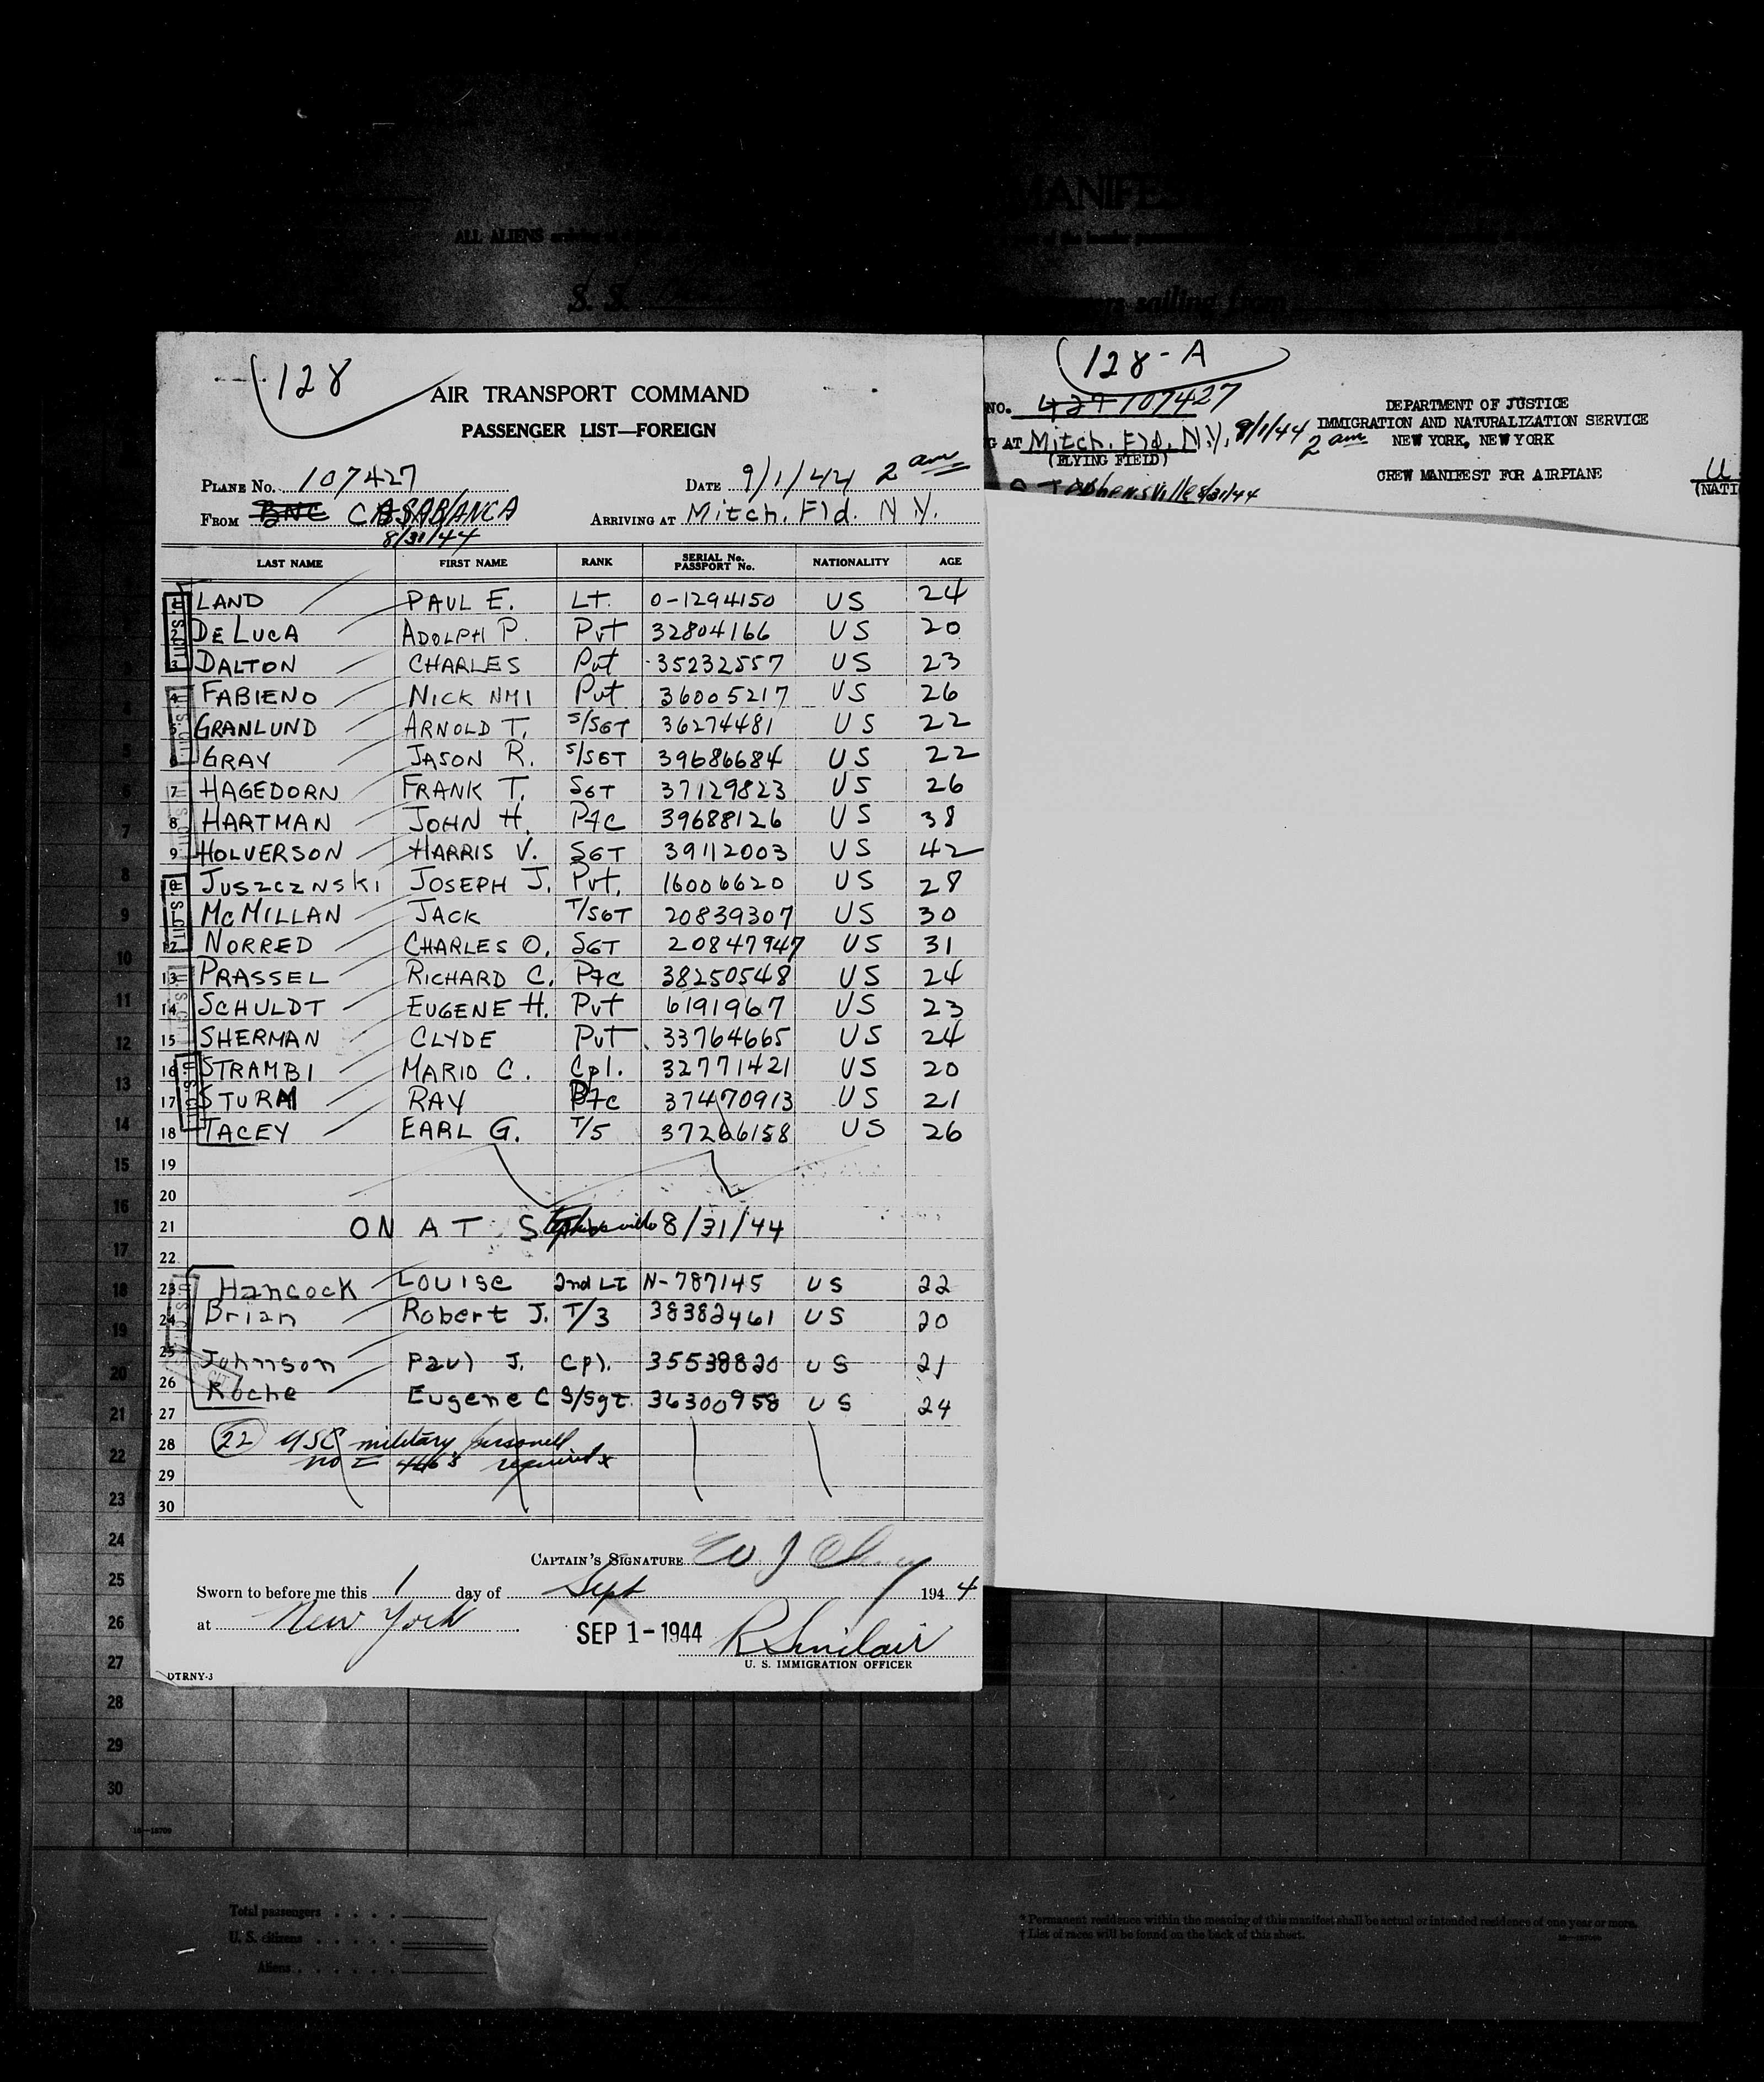 MANIFES
ALL ALIENS
S. S.
sailing from
128
AIR TRANSPORT COMMAND
PASSENGER LIST—FOREIGN
PLANE No. 107427 DATE 9/1/44 2 am
FROM BNC CASABLANCA ARRIVING AT Mitch. Fld. N.Y.
8/31/44
LAST NAME FIRST NAME RANK SERIAL No. PASSPORT No. NATIONALITY AGE
1 LAND PAUL E. LT. O-1294150 US 24
2 DE LUCA ADOLPH P. Pvt 32804166 US 20
3 DALTON CHARLES Pvt 35232557 US 23
4 FABIENO NICK NMI Pvt 36005217 US 26
5 GRANLUND ARNOLD T. S/SGT 36274481 US 22
6 GRAY JASON R. S/SGT 39686684 US 22
7 HAGEDORN FRANK T. SGT 37129823 US 26
8 HARTMAN JOHN H. Pfc 39688126 US 38
9 HOLVERSON HARRIS V. SGT 39112003 US 42
10 JUSZCZNSKI JOSEPH J. Pvt. 16006620 US 28
11 MCMILLAN JACK T/SGT 20839307 US 30
12 NORRED CHARLES O. SGT 20847947 US 31
13 PRASSEL RICHARD C. Pfc 38250548 US 24
14 SCHULDT EUGENE H. Pvt 6191967 US 23
15 SHERMAN CLYDE Pvt 33764665 US 24
16 STRAMBI MARIO C. Cpl. 32771421 US 20
17 STURM RAY Pfc 37470913 US 21
18 TACEY EARL G. T/5 37266158 US 26
19
20
21 ON AT Stephensville 8/31/44
22
23 Hancock Louise 2nd LT N-787145 US 22
24 Brian Robert J. T/3 38382461 US 20
25 Johnson Paul J. Cpl. 35538820 US 21
26 Roche Eugene C S/Sgt. 36300958 US 24
27
28 22 USC military personell
29 no I 446s required
30
CAPTAIN'S SIGNATURE W J
Sworn to before me this 1 day of Sept 1944
at New York SEP 1-1944 R Sinclair
U. S. IMMIGRATION OFFICER
DTRNY-3
128-A
NO. 427 107427
G AT Mitch. Fld. N.Y. 9/1/44 2 am
(FLYING FIELD)
Stephensville 8/31/44
DEPARTMENT OF JUSTICE
IMMIGRATION AND NATURALIZATION SERVICE
NEW YORK, NEW YORK
CREW MANIFEST FOR AIRPLANE
U.
(NATI
6
7
8
9
10
11
12
13
14
15
16
17
18
19
20
21
22
23
24
25
26
27
28
29
30
16—18700
Total passengers
U. S. citizens
Aliens
* Permanent residence within the meaning of this manifest shall be actual or intended residence of one year or more.
† List of races will be found on the back of this sheet.